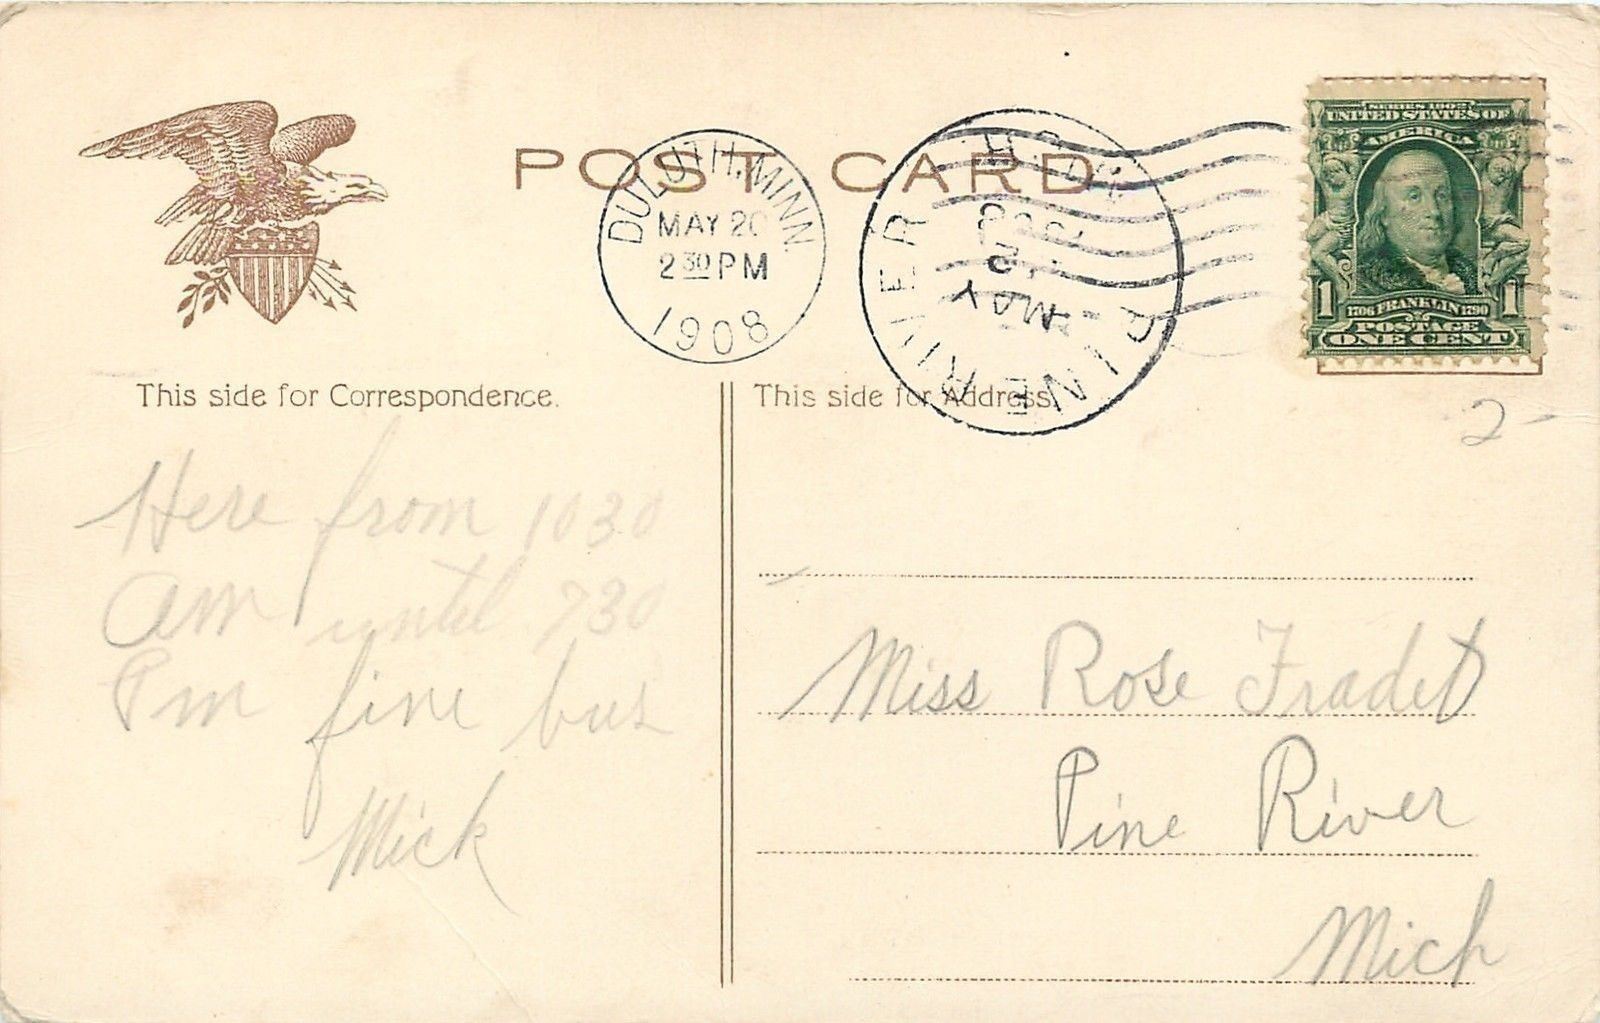 POST CARD
DULUTH, MINN.
MAY 20
2 30 PM
1908
PINE RIVER
MICH.
MAY
SERIES 1902
UNITED STATES OF
AMERICA
1 FRANKLIN 1
1706 1790
POSTAGE
ONE CENT
This side for Correspondence.
This side for Address.
2-
Here from 1030
am until 730
Pm fine bus
Mick
Miss Rose Fradet
Pine River
Mich